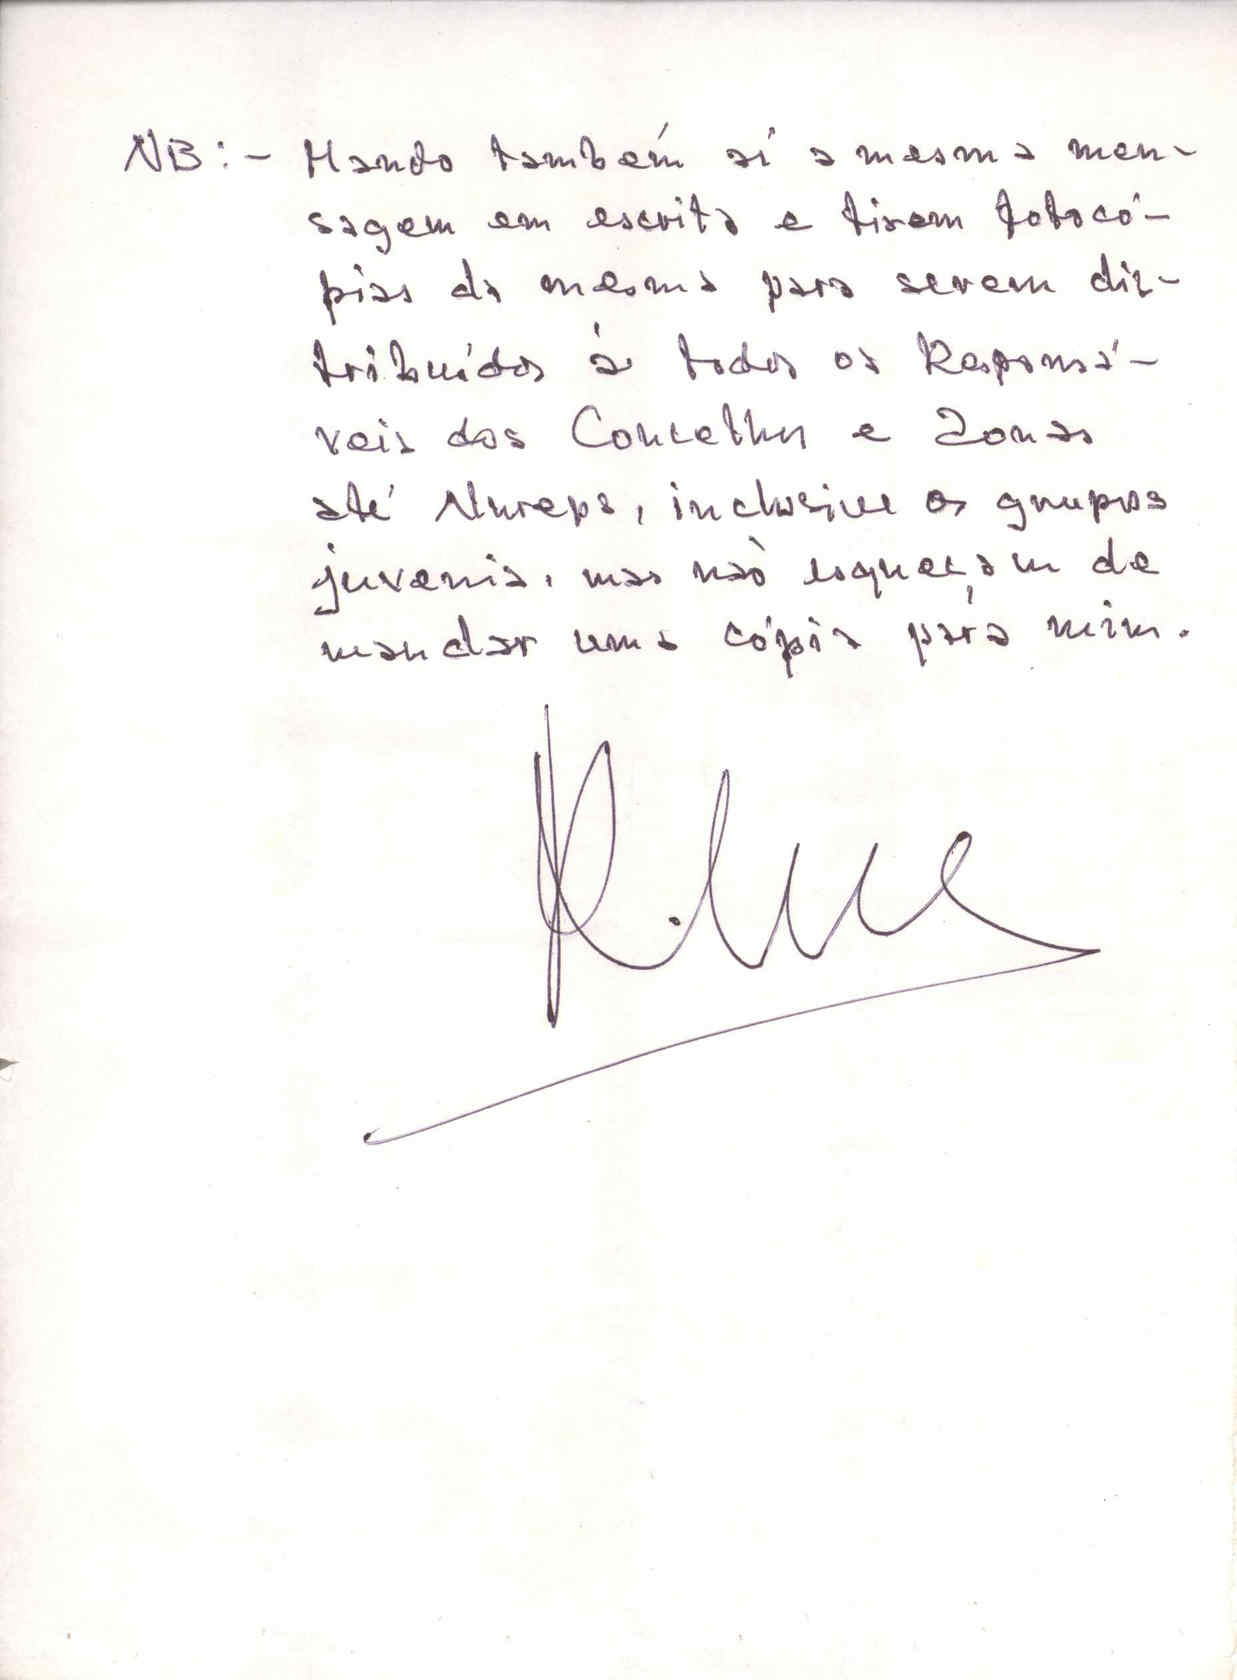 NB:- Mando também aí a mesma men-
sagem em escrita e tirem fotocó-
pias da mesma para serem dis-
tribuídos à todos os Responsá-
veis dos Concelhos e Zonas
até Nureps, inclusive os grupos
juvenis, mas não esqueçam de
mandar uma cópia para mim.